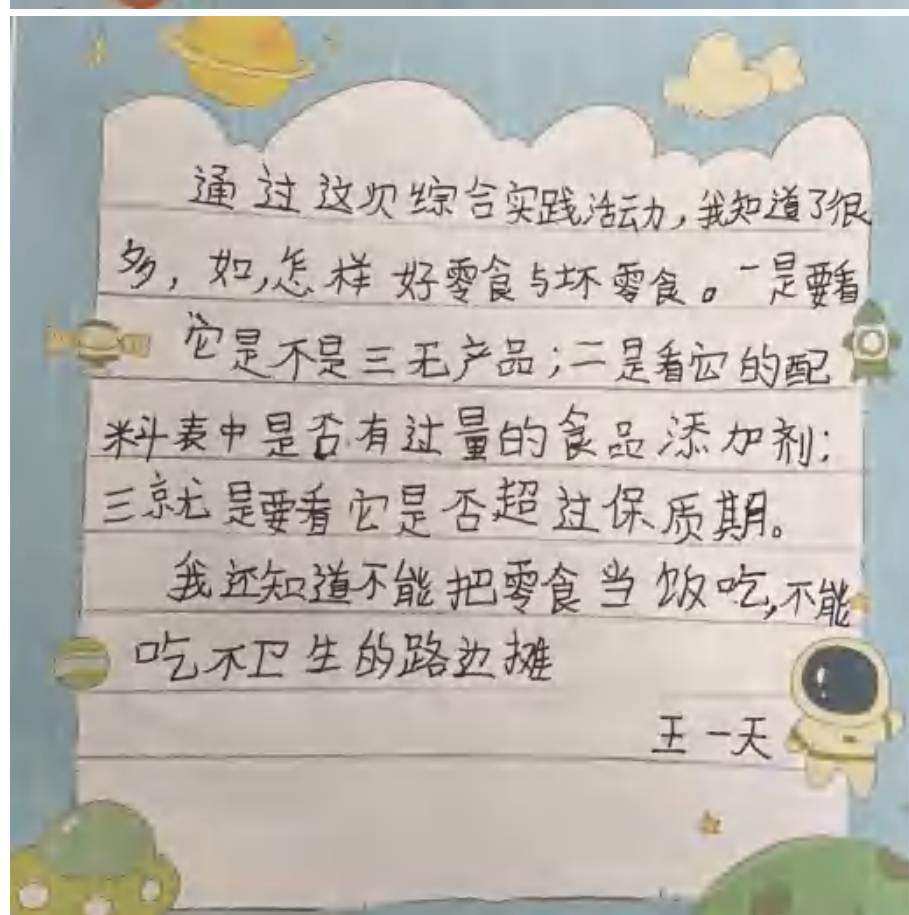 通过这次综合实践活动,我知道了很
多,如,怎样好零食与坏零食。一是要看
它是不是三无产品;二是看它的配
料表中是否有过量的食品添加剂;
三就是要看它是否超过保质期。
我还知道不能把零食当饭吃,不能
吃不卫生的路边摊
王一天